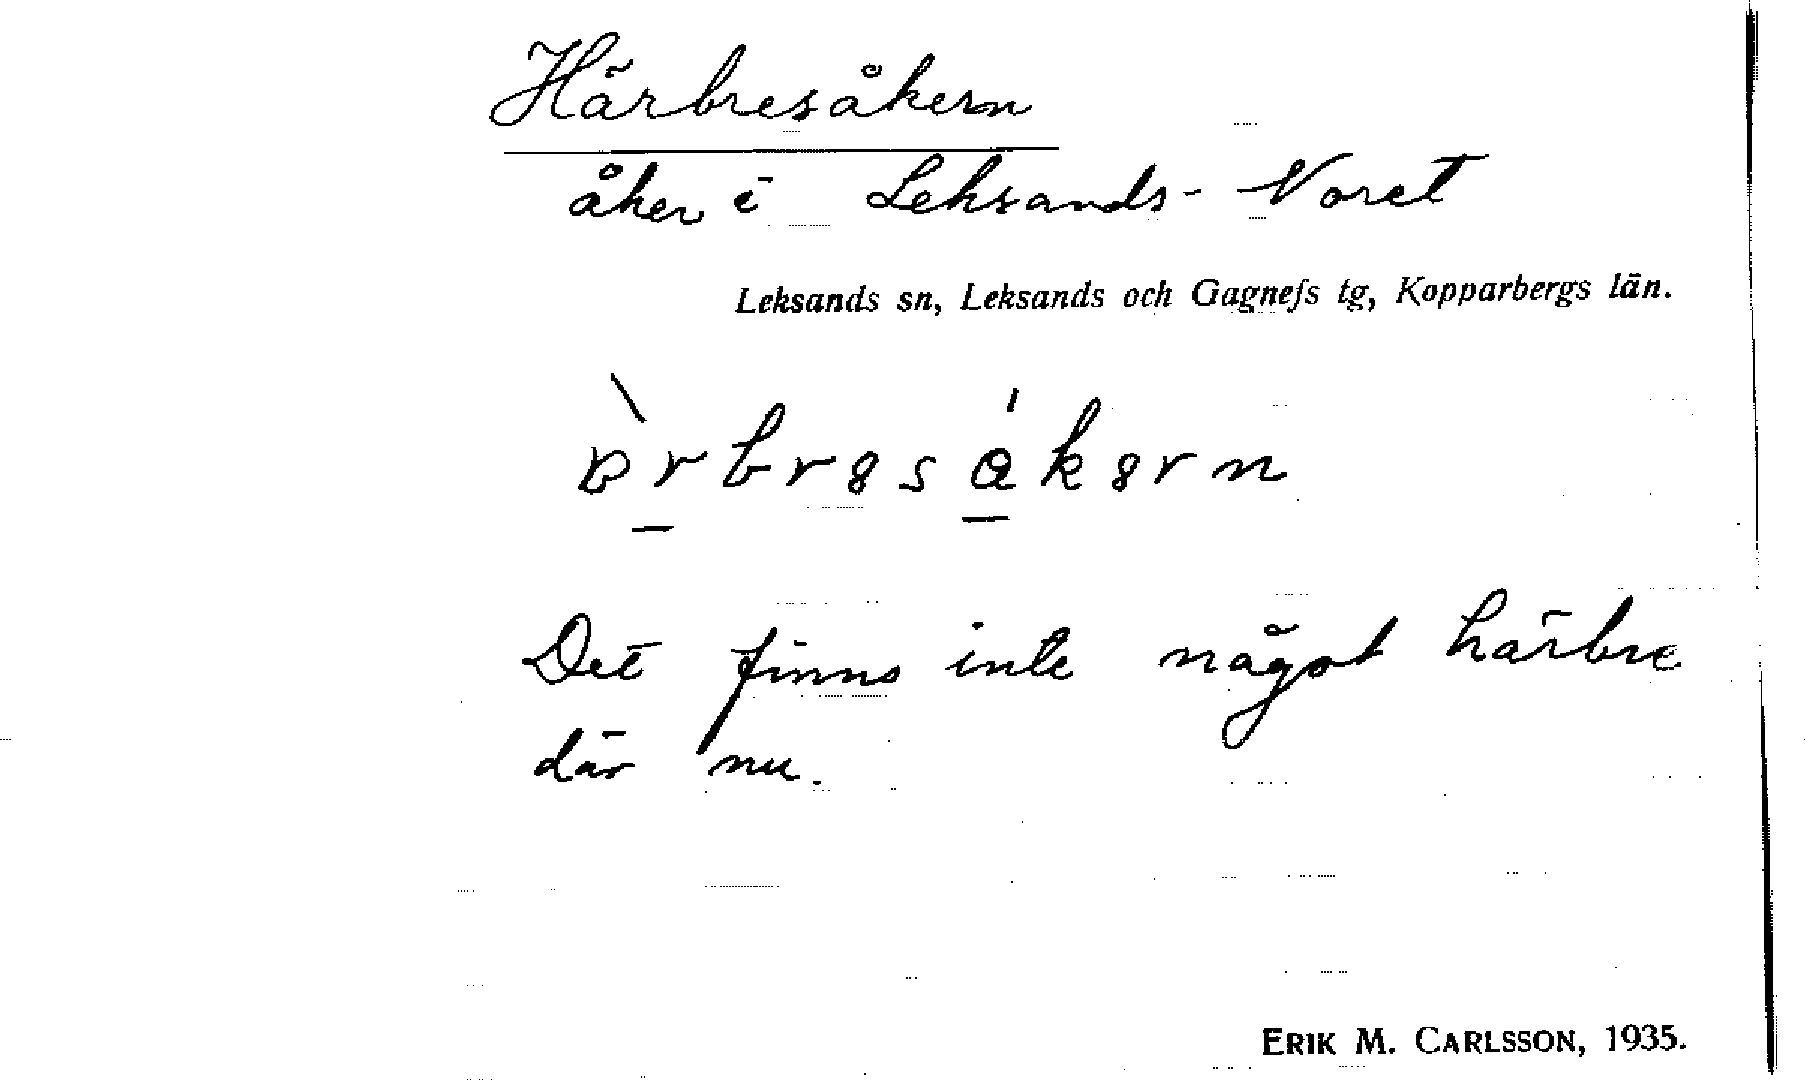 Härbresåkern
åker i Leksands-Noret
Leksands sn, Leksands och Gagnefs tg, Kopparbergs län.
Det finns inte något härbre
där nu.
ERIK M. CARLSSON, 1935.